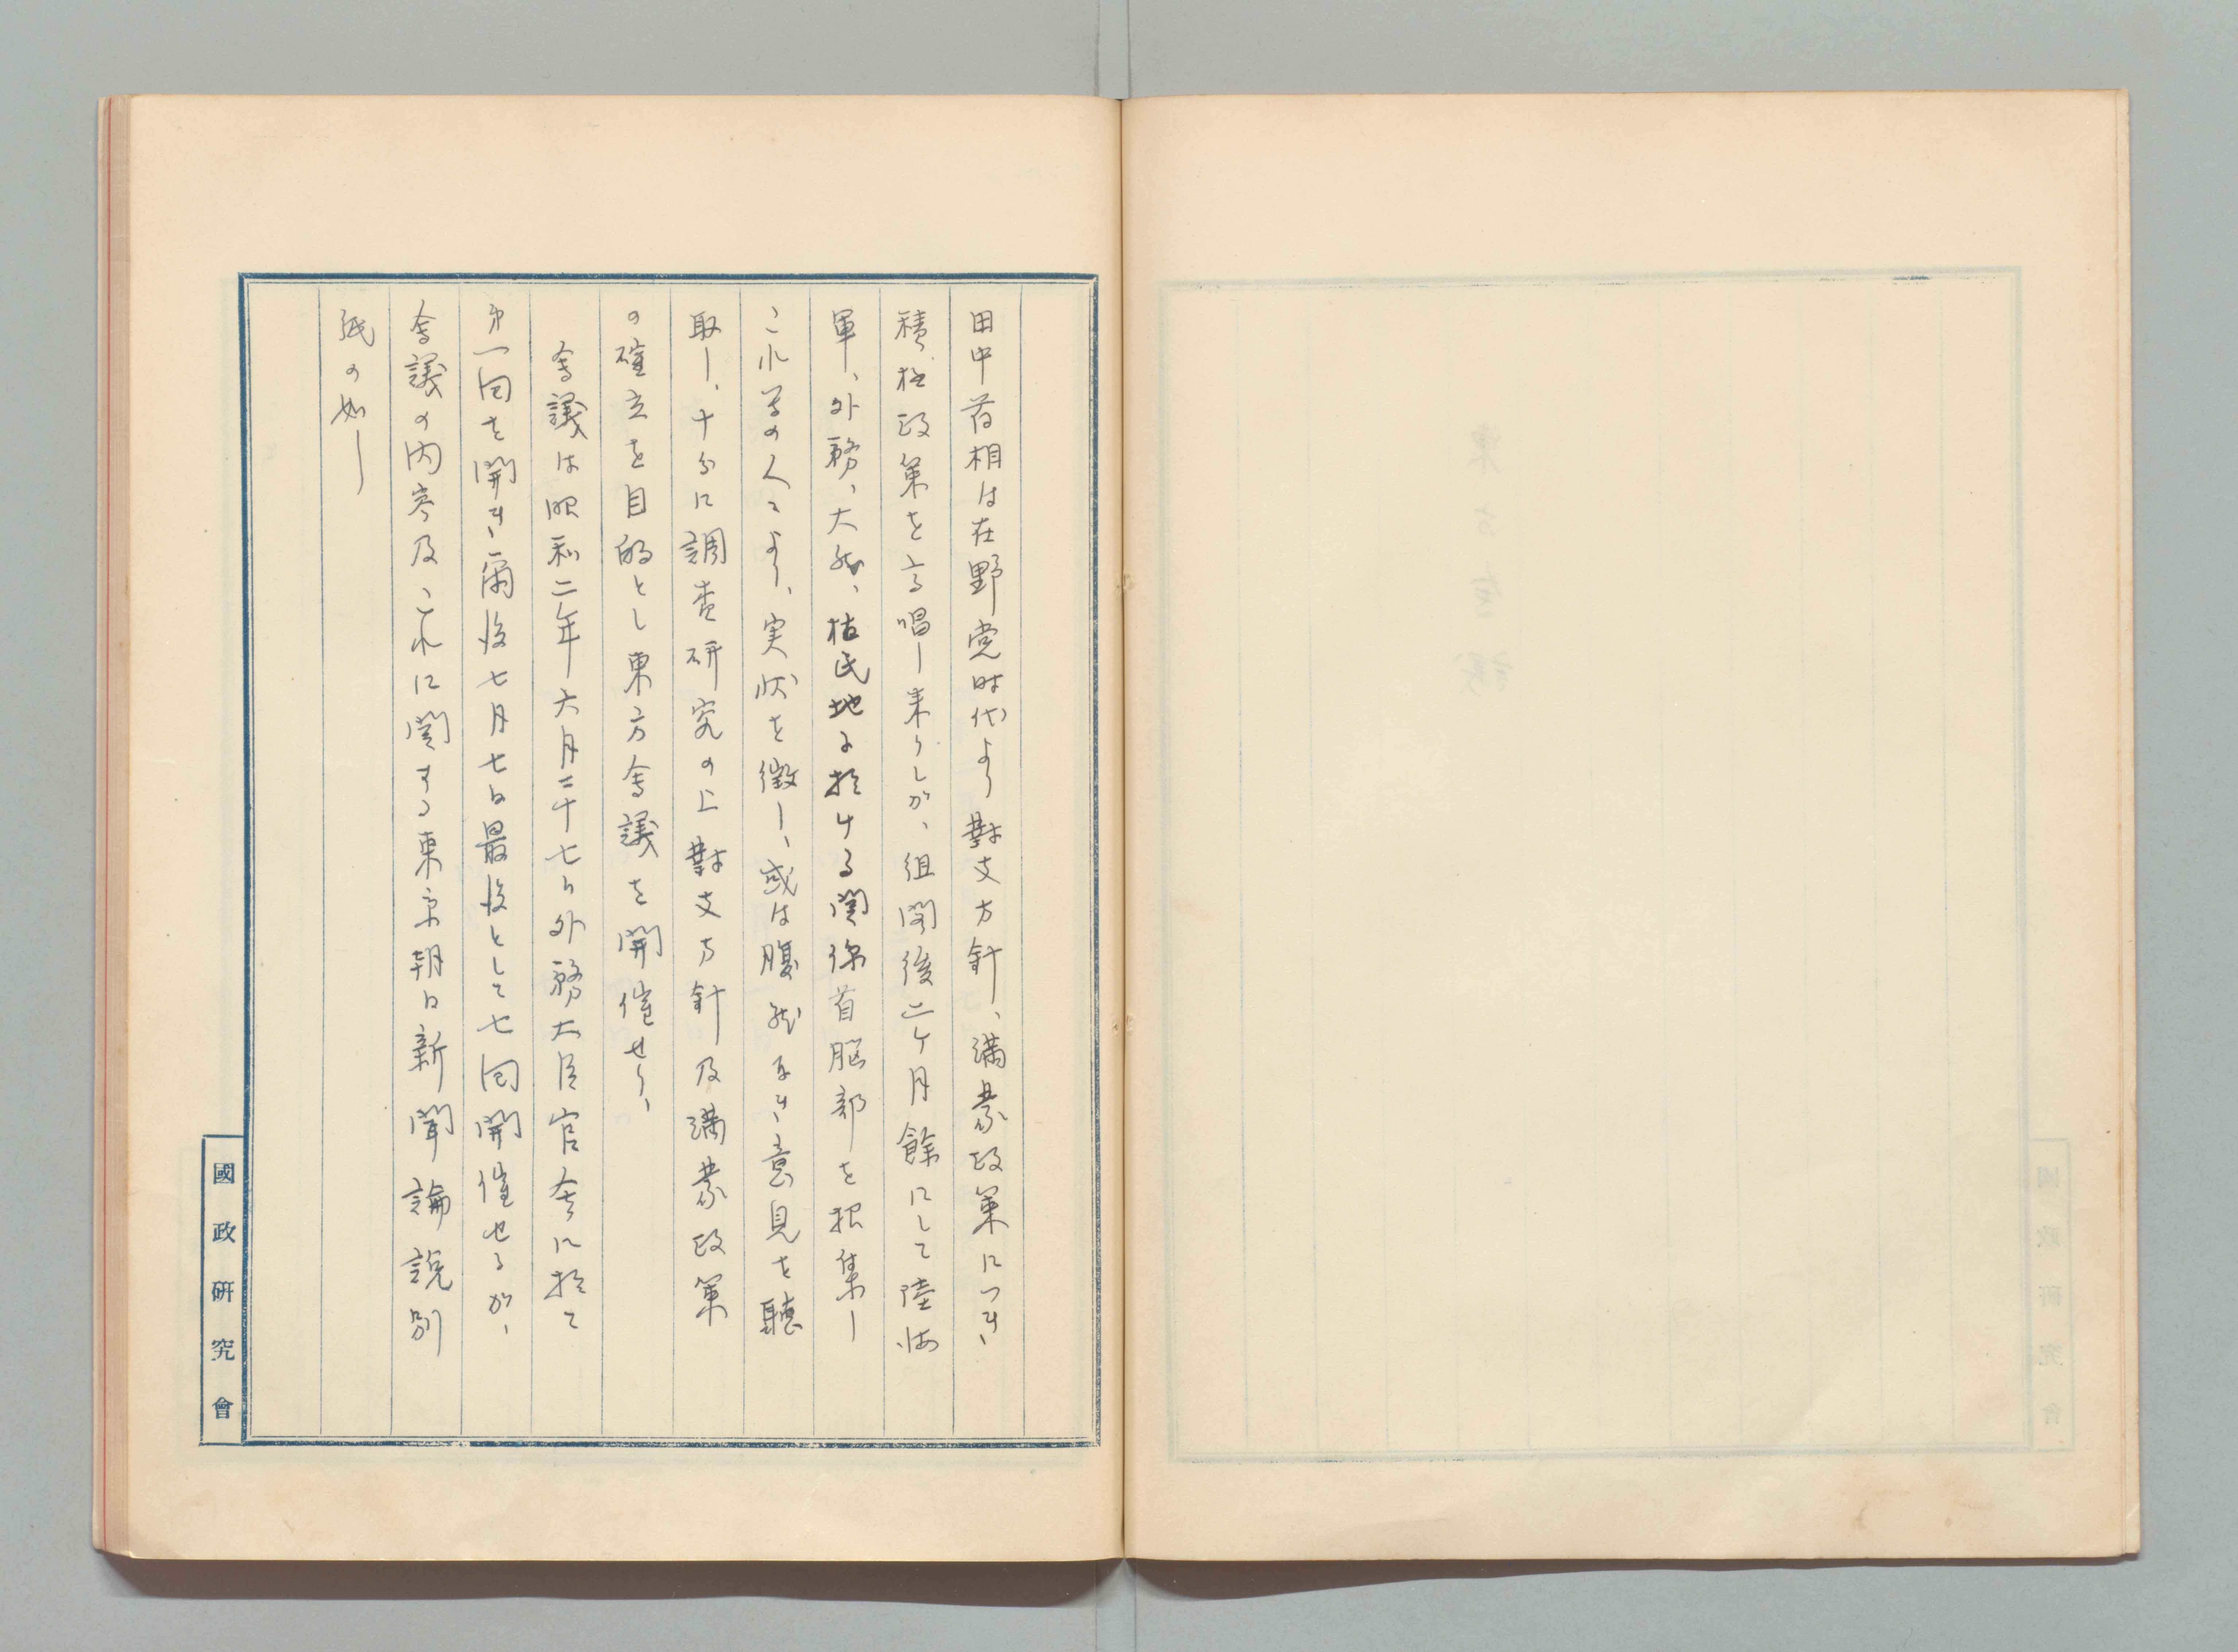 田中首相は在野党时代より對支方針、満蒙政策につき
積極政策を高唱し来りしが、組閣後二ケ月餘にして陸海
軍、外務、大蔵、植民地に於ける関係首脳部を招集し
これ等の人々より、実状を徴し、或は腹蔵なき意見を聴
取し、十分に調査研究の上對支方針及満蒙政策
の確立を目的とし東方会議を開催せり、
会議は昭和二年六月二十七日外務大臣官舎に於て
第一回を開き、爾後七月七日最後として七回開催せるが、
会議の内容及これに関する東京朝日新聞論説別
紙の如し
國政研究會